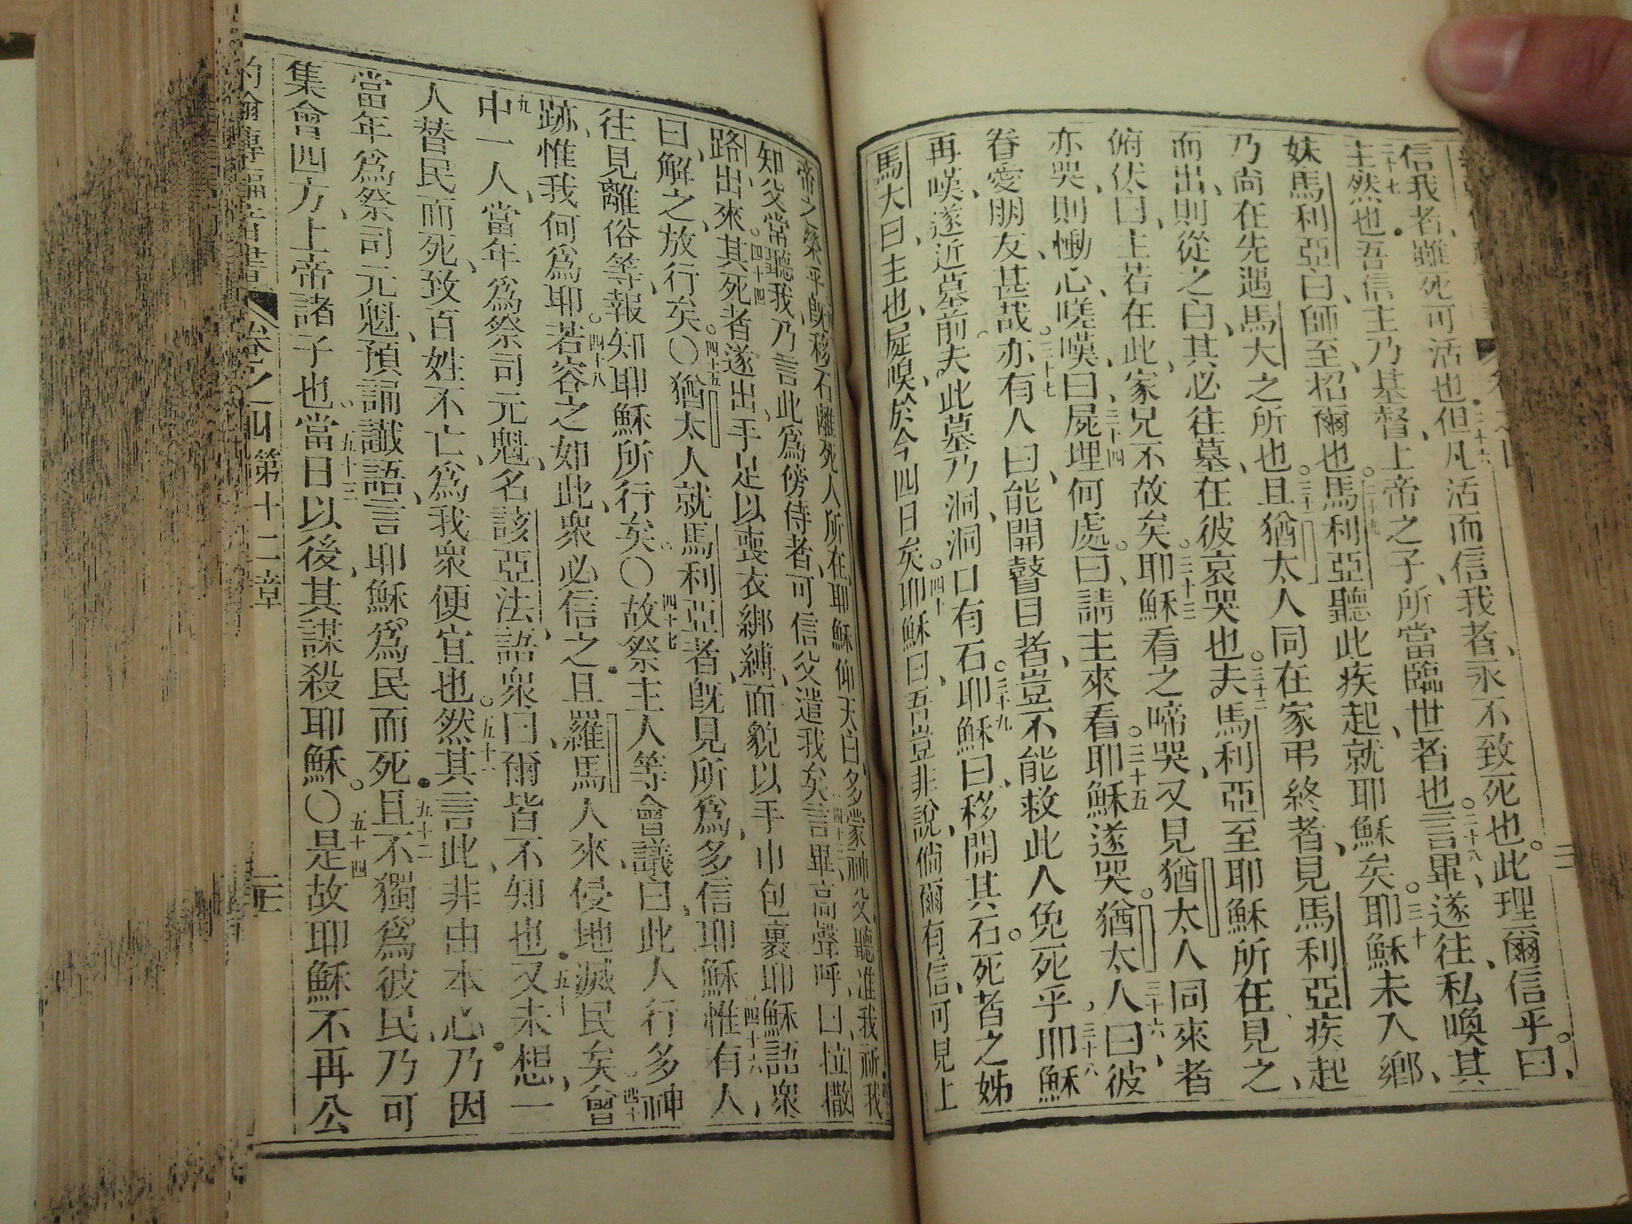 信我者、雖死可活也。二十六但凡活而信我者、永不致死也。此理爾信乎。曰、
二十七主然也。吾信主乃基督、上帝之子、所當臨世者也。二十八言畢、遂往私喚其
妹馬利亞曰、師至招爾也。二十九馬利亞聽此、疾起就耶穌矣。三十耶穌未入鄉、
乃尚在先遇馬大之所也。三十一且猶太人同在家弔終者、見馬利亞疾起
而出、則從之曰、其必往墓、在彼哀哭也。三十二夫馬利亞至耶穌所在見之、
俯伏曰、主若在此、家兄不故矣。三十三耶穌看之啼哭、又見猶太人同來者
亦哭、則慟心嗟嘆、三十四曰、屍埋何處。曰、請主來看。三十五耶穌遂哭。三十六猶太人曰、彼
眷愛朋友甚哉。三十七亦有人曰、能開瞽目者、豈不能救此人免死乎。三十八耶穌
再嘆、遂近墓前、夫此墓乃洞、洞口有石。三十九耶穌曰、移開其石。死者之姊
馬大曰、主也、屍嗅、於今四日矣。四十耶穌曰、吾豈非說、倘爾有信、可見上
帝之榮乎。既移石離死人所在、耶穌仰天曰、多蒙神父聽准我祈、四十二我
知父常聽我、乃言此為傍侍者、可信父遣我矣。四十三言畢、高聲呼曰、拉撒
路、出來。四十四其死者遂出、手足以喪衣綁縛、而貌以手巾包裹、耶穌語眾
曰、解之、放行矣。〇四十五猶太人就馬利亞者、既見所為、多信耶穌、四十六惟有人
往見離俗等、報知耶穌所行矣。〇四十七故祭主人等會議曰、此人行多神
跡、惟我何為耶。四十八若容之如此、眾必信之、且羅馬人來、侵地滅民矣。四十九會
中一人、當年為祭司元魁、名該亞法、語眾曰、爾皆不知也、五十又未想、一
人替民而死、致百姓不亡、為我眾便宜也。五十一然其言此、非由本心、乃因
當年為祭司元魁、預誦讖語、言耶穌為民而死。五十二且不獨為彼民、乃可
集會四方上帝諸子也。五十三當日以後、其謀殺耶穌。〇五十四是故耶穌不再公
約翰傳福音書 卷之四 第十二章